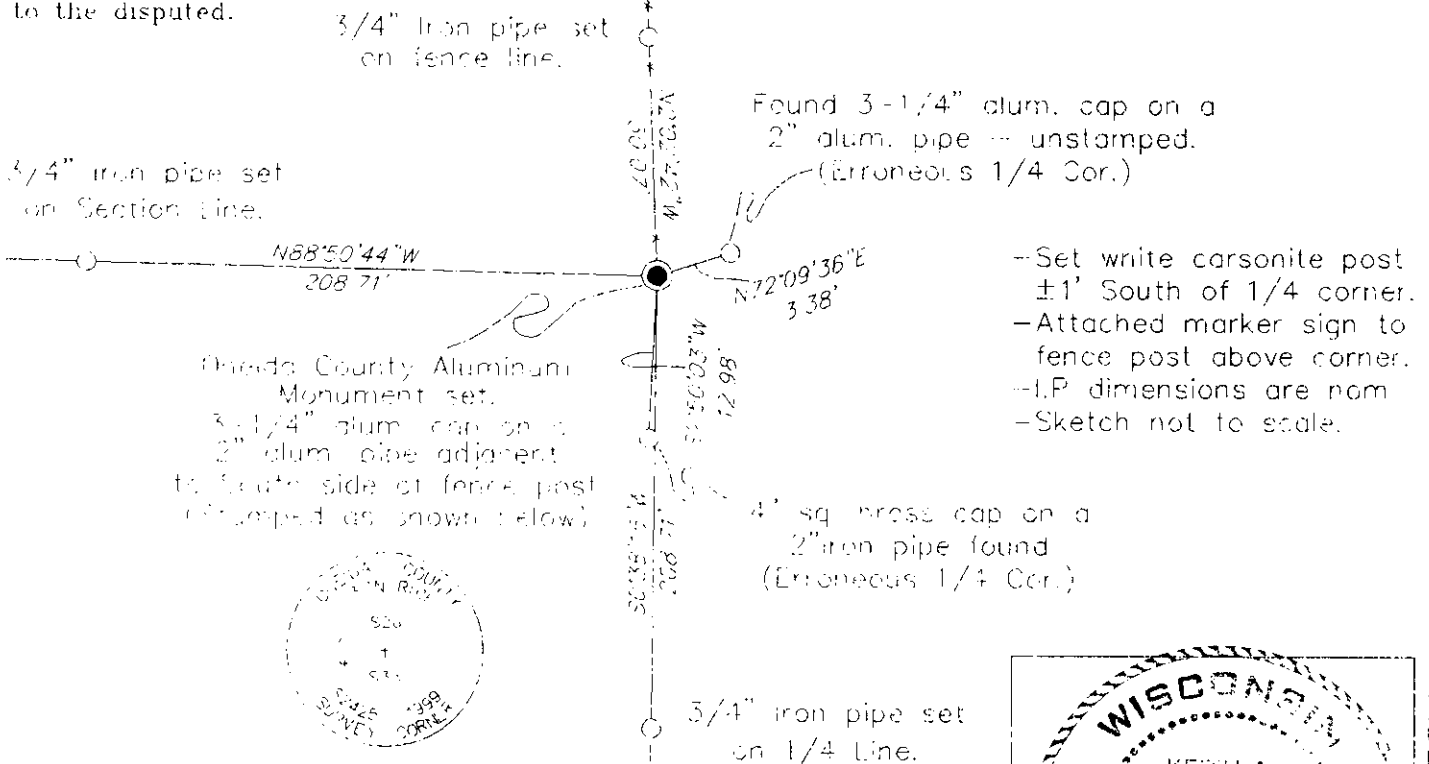 to the disputed.
3/4" Iron pipe set
on fence line.
Found 3-1/4" alum. cap on a
2" alum. pipe -- unstamped.
(Erroneous 1/4 Cor.)
3/4" iron pipe set
on Section Line.
N88°50'44"W
208.71'
N72°09'36"E
3.38'
-Set white carsonite post
±1' South of 1/4 corner.
-Attached marker sign to
fence post above corner.
-I.P dimensions are nom
-Sketch not to scale.
Oneida County Aluminum
Monument set.
3-1/4" alum. cap on a
2" alum. pipe adjacent
to South side of fence post
(Stamped as shown below)
12.98'
208.71'
4" sq brass cap on a
2"iron pipe found
(Erroneous 1/4 Cor.)
COUNTY
SURVEY CORNER
3/4" iron pipe set
on 1/4 Line.
WISCONSIN